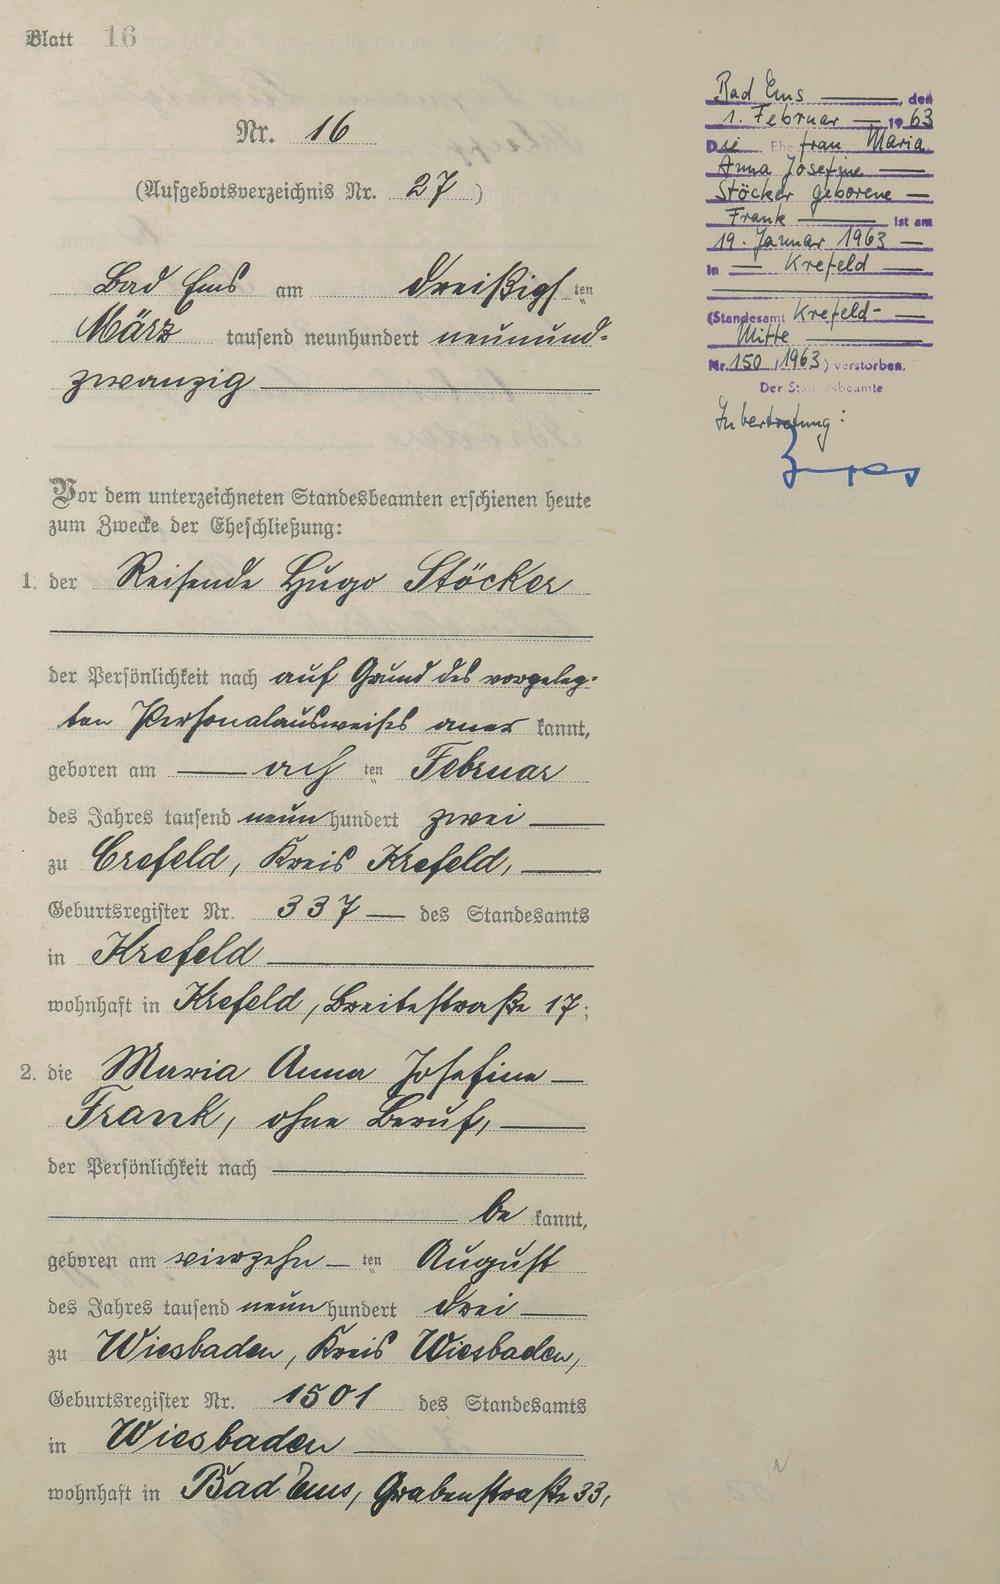 Blatt 16
Nr. 16
(Aufgebotsverzeichnis Nr. 27)
Bad Ems am dreißigsten
März tausend neunhundert neunund-
zwanzig
Vor dem unterzeichneten Standesbeamten erschienen heute
zum Zwecke der Eheschließung:
1. der Reisende Hugo Stöcker
der Persönlichkeit nach auf Grund des vorgeleg-
ten Personalausweises aner kannt,
geboren am acht ten Februar
des Jahres tausend neun hundert zwei
zu Crefeld, Kreis Krefeld,
Geburtsregister Nr. 337 des Standesamts
in Krefeld
wohnhaft in Krefeld, Breitestraße 17;
2. die Maria Anna Josefine
Frank, ohne Beruf,
der Persönlichkeit nach
be kannt,
geboren am vierzehn ten August
des Jahres tausend neun hundert drei
zu Wiesbaden, Kreis Wiesbaden,
Geburtsregister Nr. 1501 des Standesamts
in Wiesbaden
wohnhaft in Bad Ems, Grabenstraße 33,
Bad Ems, den
1. Februar 1963
Die Ehefrau Maria
Anna Josefine
Stöcker geborene
Frank ist am
19. Januar 1963
in Krefeld
(Standesamt Krefeld-
Mitte
Nr. 150/1963) verstorben.
Der Standesbeamte
In Vertretung: